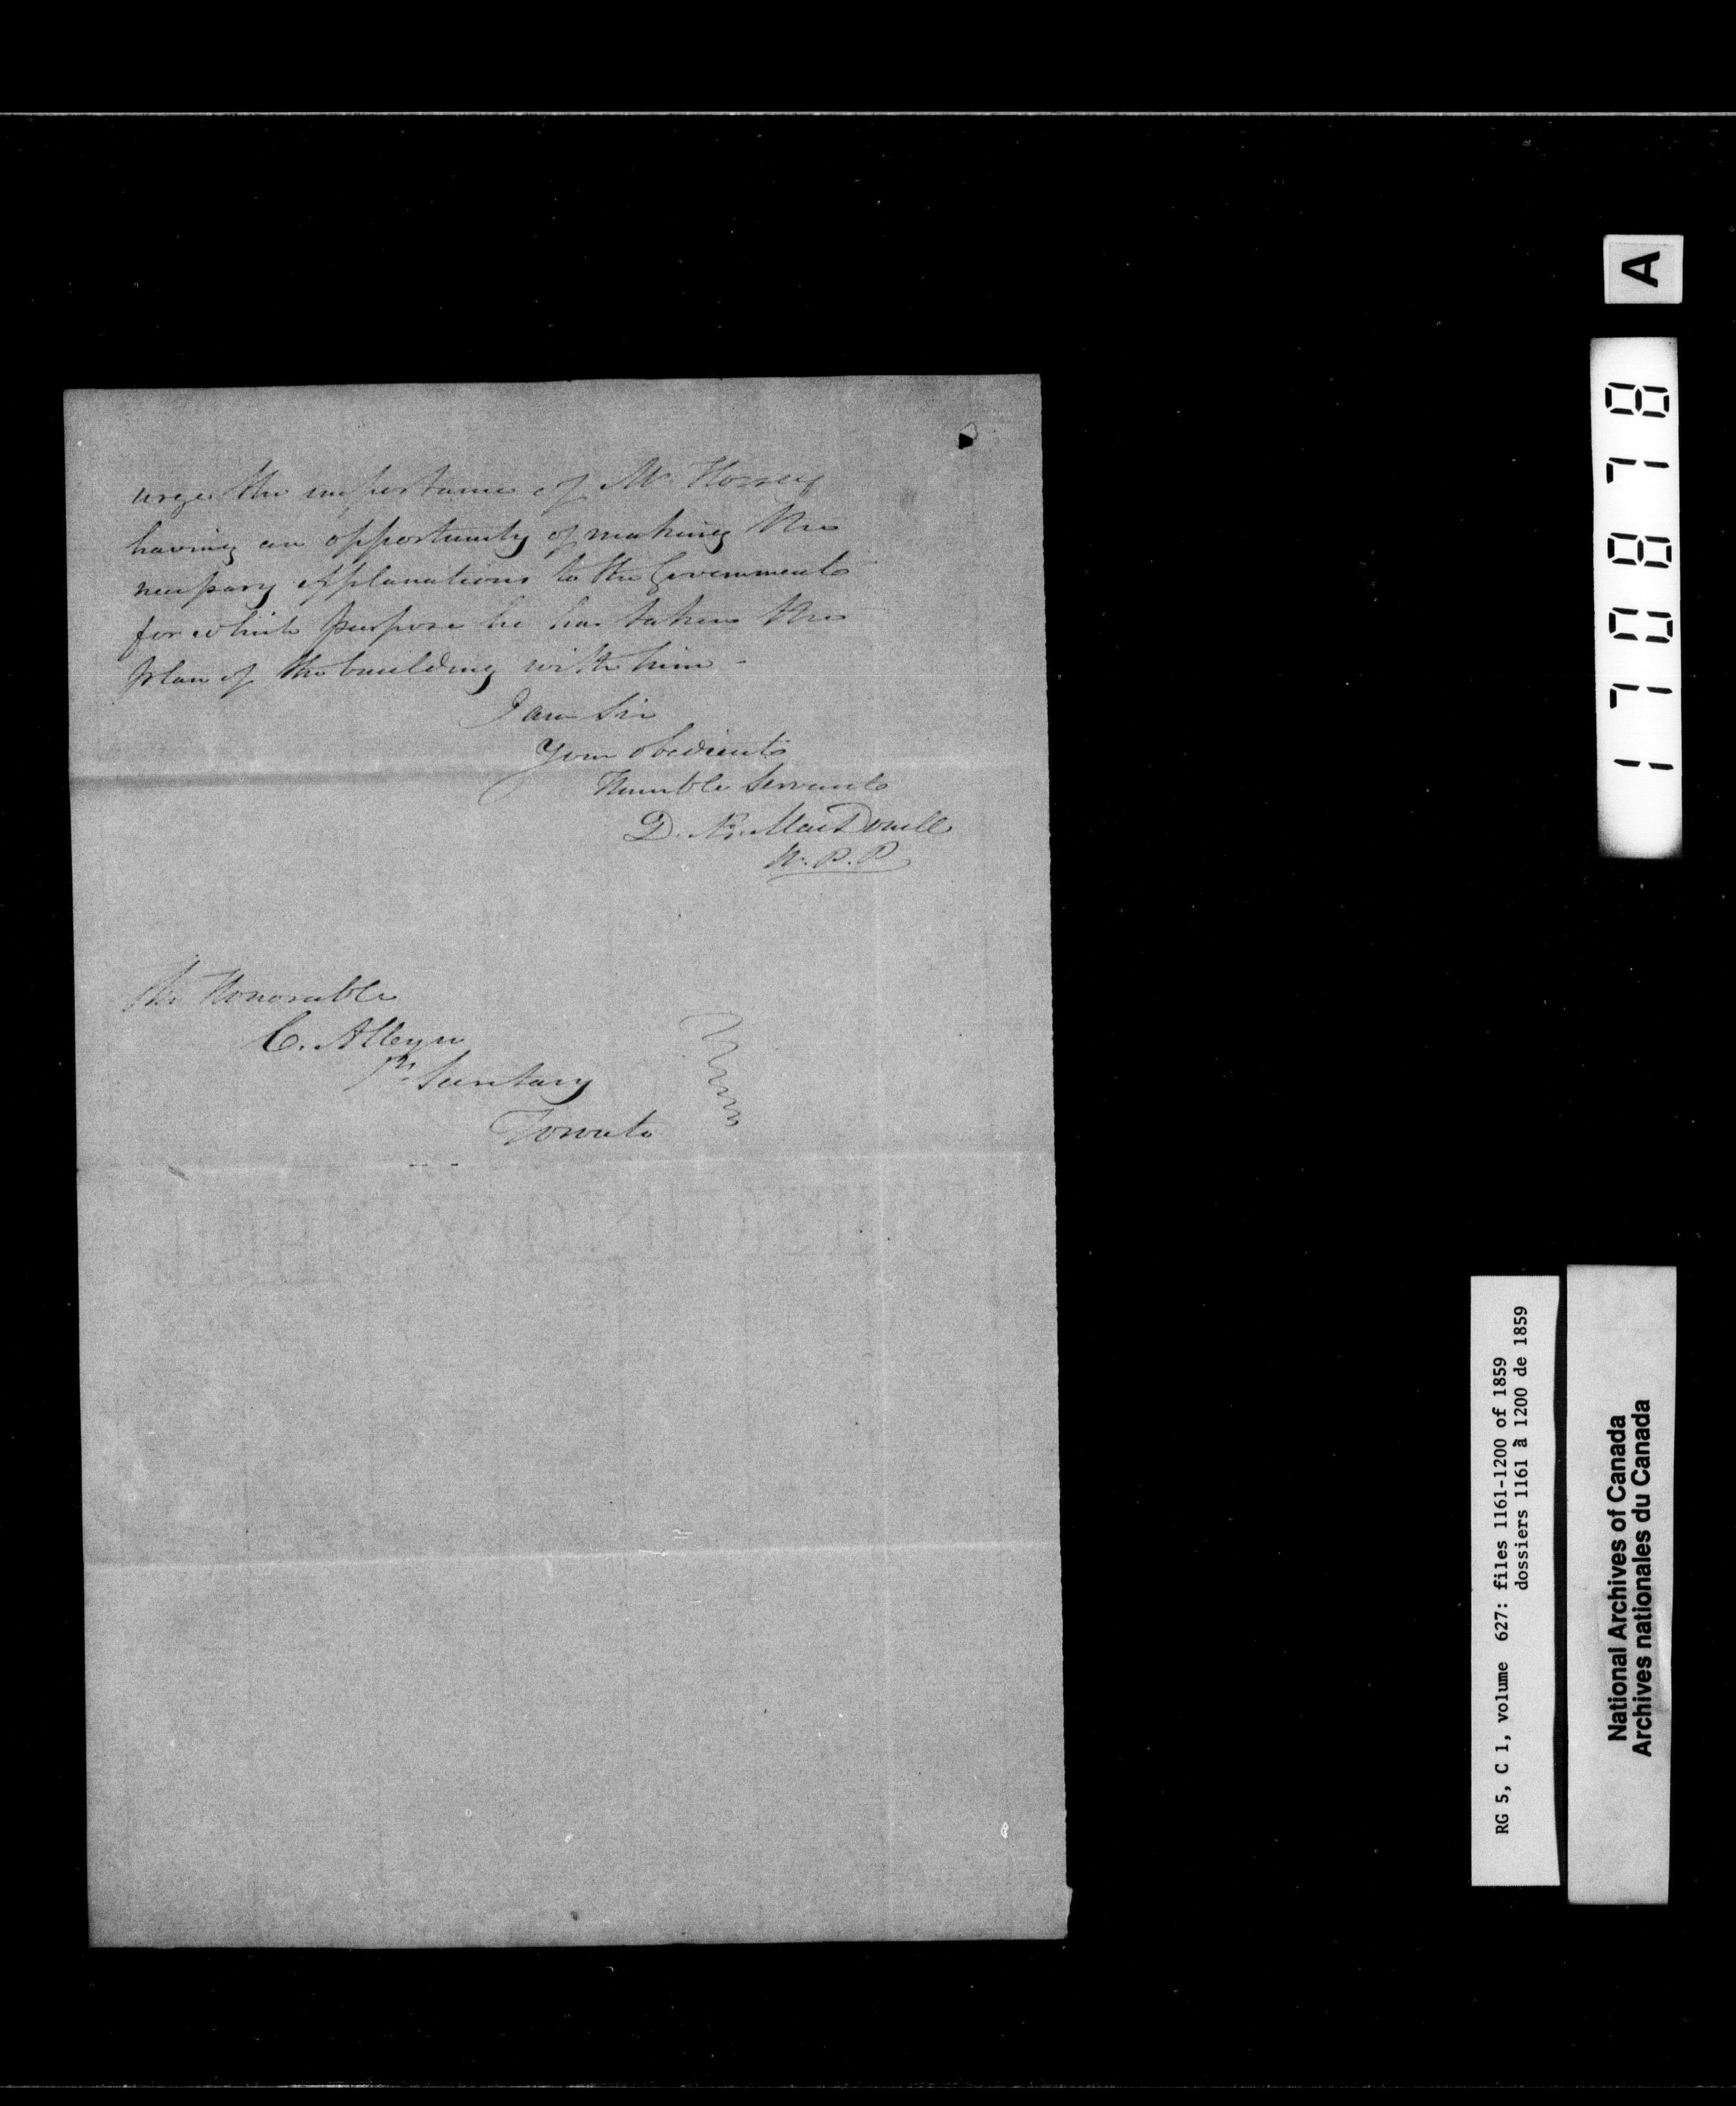 urge the importance of Mr Horsey
having an opportunity of making the
necessary explanations to the Government
for which purpose he has taken the
plan of the building with him -
I am Sir
Your obedient
Humble Servant
D. Æ. MacDonell
W. P. P
The Honorable
C. Alleyn
Pl. Secretary
Toronto
A
170878
RG 5, C 1, volume 627: files 1161-1200 of 1859
dossiers 1161 à 1200 de 1859
National Archives of Canada
Archives nationales du Canada